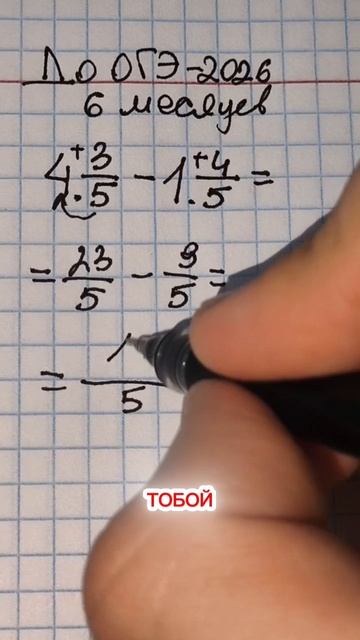 До ОГЭ-2026
6 месяцев
4 3/5 - 1 4/5 =
= 23/5 - 9/5 =
= 1/5
ТОБОЙ